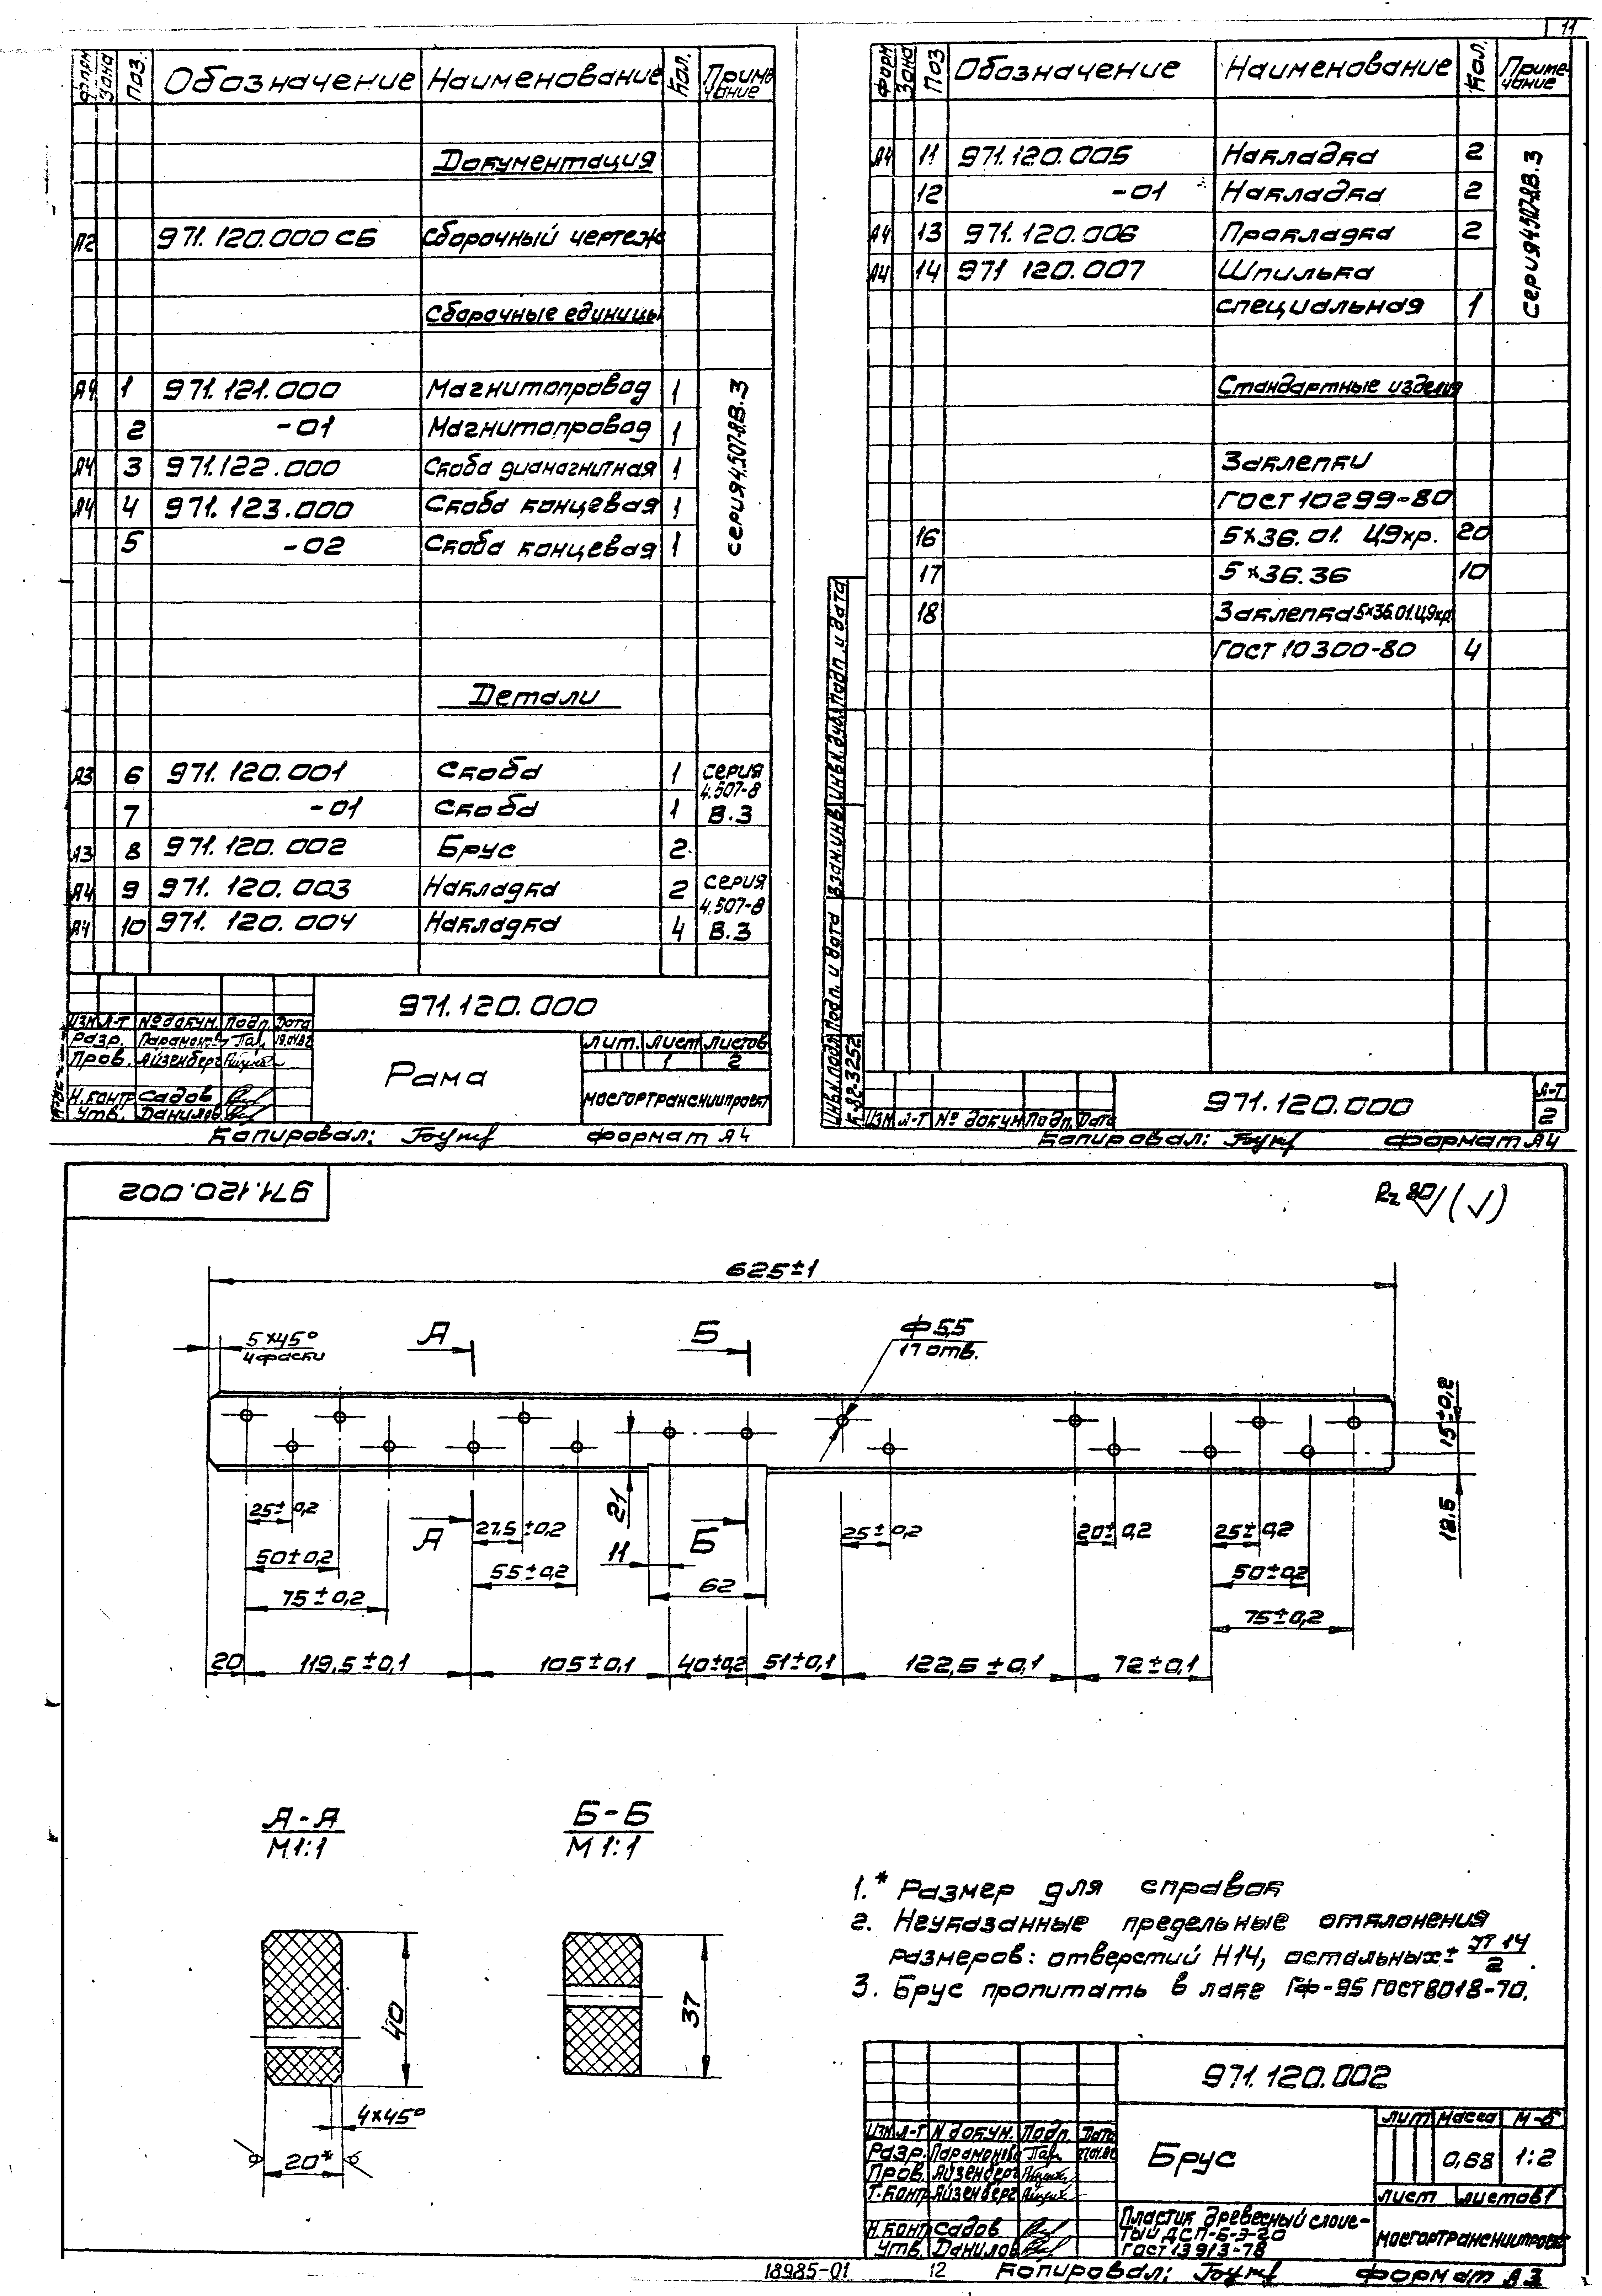 11
Форм Зона Поз. Обозначение Наименование Кол. Примечание
Документация
А2 971.120.000 СБ Сборочный чертеж
Сборочные единицы
А4 1 971.121.000 Магнитопровод 1
2 -01 Магнитопровод 1
А4 3 971.122.000 Скоба диамагнитная 1
А4 4 971.123.000 Скоба концевая 1
5 -02 Скоба концевая 1
серия 4.507-8 В.3
Детали
А3 6 971.120.001 Скоба 1 серия
4.507-8
7 -01 Скоба 1 В.3
А3 8 971.120.002 Брус 2
А4 9 971.120.003 Накладка 2 серия
4.507-8
А4 10 971.120.004 Накладка 4 В.3
971.120.000
Изм Л-т № докум. Подп. Дата
Разр. Парамонова
Пров. Айзенберг
Н.контр Садов
Утв. Данилов
Рама
Лит. Лист Листов
1 2
Мосгортрансниипроект
Копировал: Формат А4
Форм Зона Поз Обозначение Наименование Кол. Примечание
А4 11 971.120.005 Накладка 2
12 -01 Накладка 2
А4 13 971.120.006 Прокладка 2
А4 14 971 120.007 Шпилька
специальная 1
серия 4.507-8 В.3
Стандартные изделия
Заклепки
ГОСТ 10299-80
16 5×36.01. Ц9хр. 20
17 5×36.36 10
18 Заклепка 5×36.01.Ц9хр.
ГОСТ 10300-80 4
Инв.№ подл Подп. и дата Взам.инв.№ Инв.№ дубл. Подп. и дата
К-82-3252
Изм Л-т № докум Подп. Дата
971.120.000
Л-т
2
Копировал: Формат А4
971.120.002
Rz 80 (√)
625±1
5×45°
4 фаски
А
Б
Ф5,5
17 отв.
15±0,2
12.5
21
25±0,2
50±0,2
75±0,2
А
27,5±0,2
55±0,2
11
Б
62
25±0,2
20±0,2
25±0,2
50±0,2
75±0,2
20 119,5±0,1 105±0,1 40±0,2 51±0,1 122,5±0,1 72±0,1
А-А
М1:1
Б-Б
М 1:1
40
4×45°
20*
37
1.* Размер для справок
2. Неуказанные предельные отклонения
размеров: отверстий Н14, остальных ± IT 14
2.
3. Брус пропитать в лаке ГФ-95 ГОСТ 8018-70.
971.120.002
Изм Л-т N докум. Подп. Дата
Разр. Парамонова
Пров. Айзенберг
Т.контр Айзенберг
Н.контр Садов
Утв. Данилов
Брус
Лит Масса М-б
0,68 1:2
Лист Листов 1
Пластик древесный слоис-
тый ДСП-Б-Э-20
ГОСТ 13913-78
Мосгортрансниипроект
18985-01 12 Копировал: Формат А3